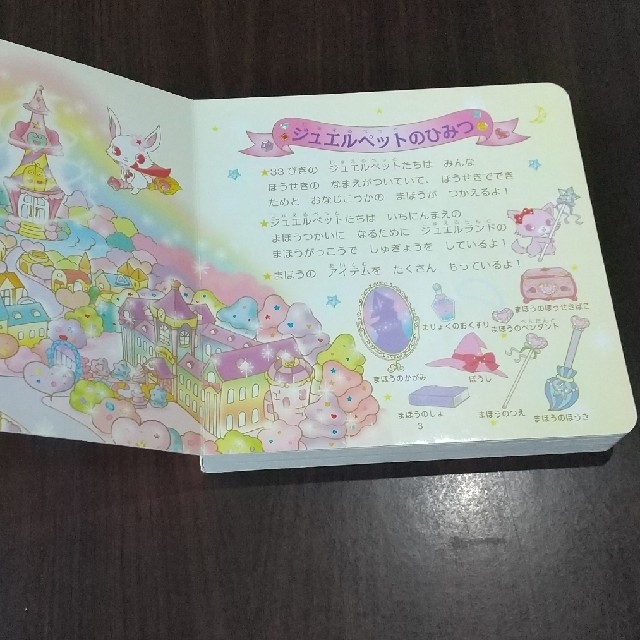 ジュエルペットのひみつ
★33ぴきの ジュエルペットたちは みんな
ほうせきの なまえがついていて、ほうせきでできた
ためと おなじにつかの まほうが つかえるよ!
★ジュエルペットたちは いちにんまえの
まほうつかいに なるために ジュエルランドの
まほうがっこうで しゅぎょうを しているよ!
★まほうの アイテムを たくさん もっているよ!
まほうのほうせきばこ
まりょくのおくすり
まほうのペンダント
まほうのかがみ
ぼうし
まほうのしょ
まほうのつえ
まほうのほうき
3